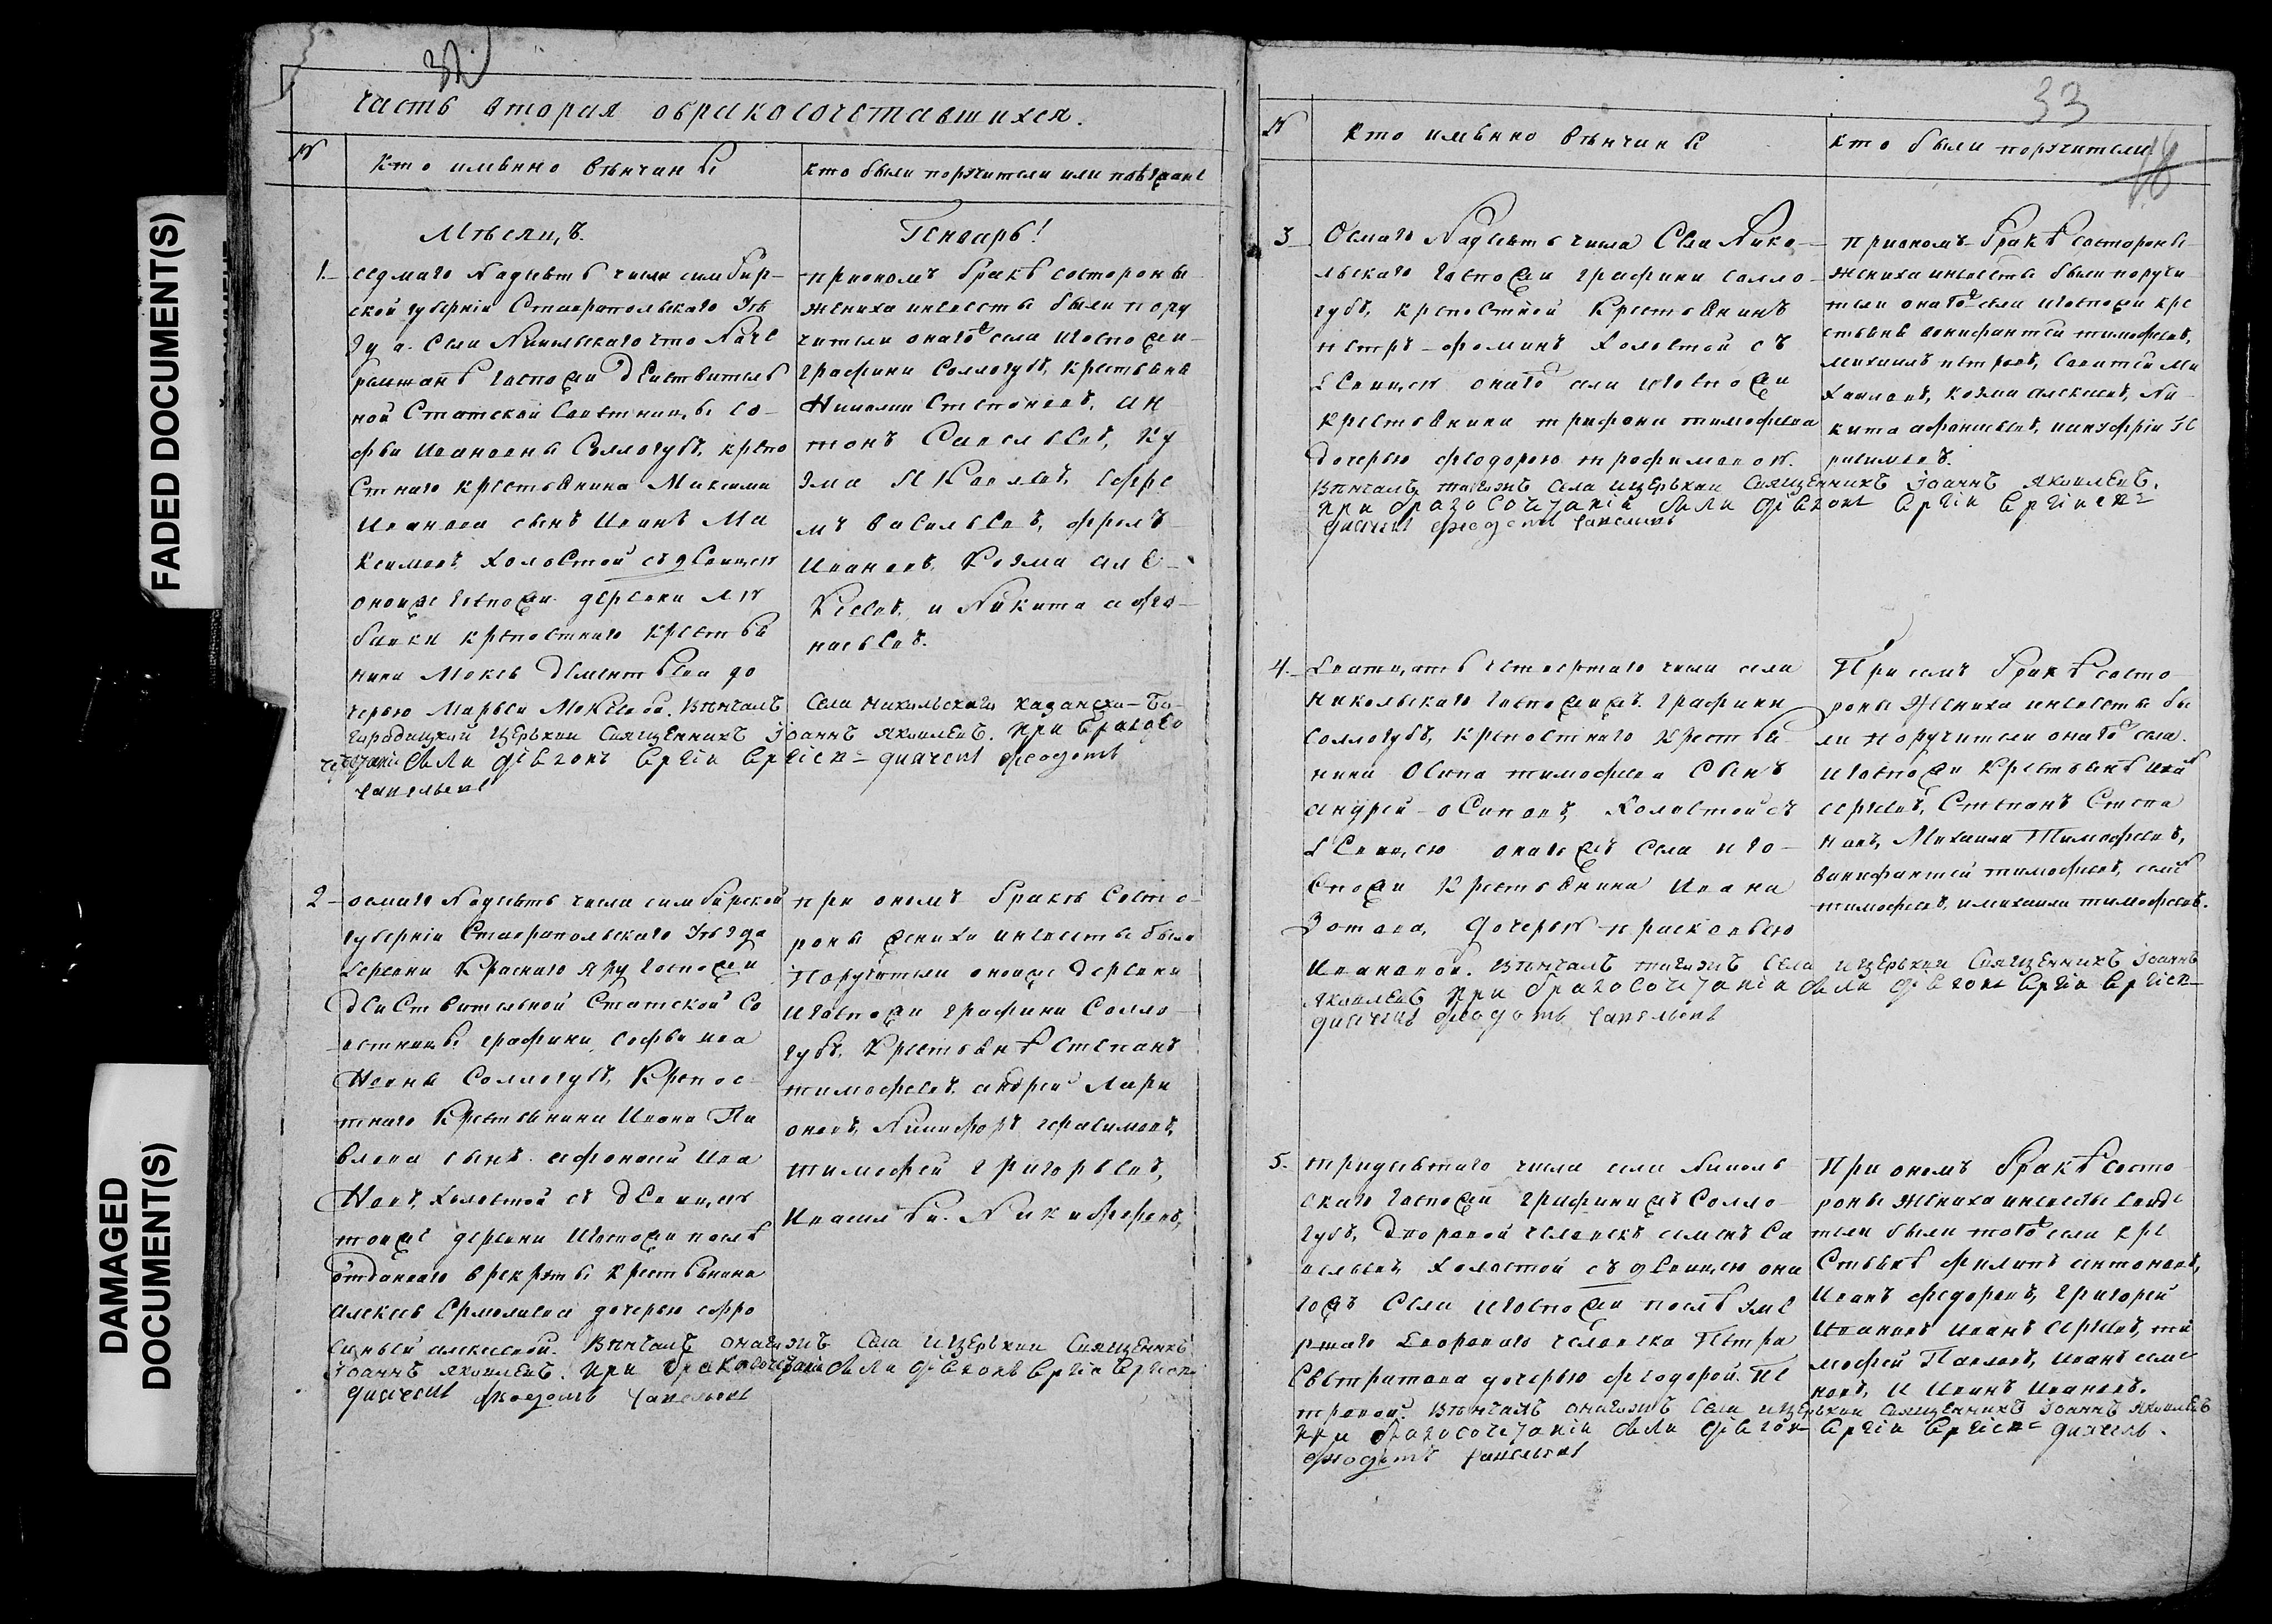 32
часть вторая обракосочетавшихся.
№
кто имѣнно вѣнчаны
кто были поручители или поѣзжане
Мѣсяцъ.
Генварь!
1.
седмаго надцеть числа симбир-
ской губерніи Ставропольскаго Уѣ
зда. Села Никольскаго что на Че
ремшанѣ Госпожи дѣйствитель
ной Статской Советницы Со-
фьи Ивановны Соллогубъ, крепо
стнаго крестьянина Максима
Иванова сынъ Иванъ Ма
ксимовъ холостой съ девицею
оной же Госпожи деревни
крепостнаго крестья
нина Мокея дементьева до
черью Марьей Мокеевой. Вѣнчалъ
Села Никольскаго Казанско-Бо-
городицкой Церькви Священникъ Iоаннъ Яковлевъ. при бракосо
четаніи были діаконъ Сергіи Сергіевъ дьячекъ феодотъ
Савельевъ
приономъ бракѣ состороны
жениха иневесты были пору
чители онагоже села игоспожи
графини Соллогубъ, крестьяна
Николаи Степановъ, ан
тонъ Савельевъ, Ку
зма Яковлевъ, Ефре
мъ васильевъ, фролъ
Ивановъ, Козма але
ксеевъ, и Никита афо
насьевъ.
2
осмаго надцеть числа симбирской
губерніи Ставропольскаго Уѣзда
деревни Краснаго яру госпожи
дѣйствительной Статской Со
ветницы графини софьи ива
новны Соллогубъ, Крепос-
тнаго Крестьянина Ивана Па
влова сынъ афонасій Ива
новъ, холостой съ девицею
тойже деревни Игоспожи послѣ
отданнаго врекруты крестьянина
алексея Ермолаева дочерью ефро
синьей алексеевой. Вѣнчалъ онагожъ Села и Церькви Священникъ
Iоаннъ Яковлевъ. при бракосочетаніи были діаконъ Сергіи Сергіевъ
дьячекъ феодотъ Савельевъ
при ономъ бракѣ Состо-
роны жениха иневесты были
Поручители онойже деревни
Игоспожи графини Солло-
губъ, Крестьянѣ Степанъ
тимофеевъ, андреи Лари
оновъ, Никифоръ герасимовъ,
тимофей григорьевъ,
Никифоровъ,
33
№
кто имѣнно вѣнчаны
кто были поручители
3
Осмаго Надцеть числа Села Нико-
льскаго госпожи графини солло-
губъ, крепостной Крестьянинъ
петръ фоминъ холостой съ
девицею онагоже села игоспожи
крестьянина трифона тимофеева
дочерью феодорою трофимовою.
Вѣнчалъ тогожъ Села ицерькви Священникъ Iоаннъ Яковлевъ.
при бракосочетаніи были діаконъ Сергіи Сергіевъ
дьячекъ феодотъ Савельевъ
приономъ бракѣ состороны
жениха иневесты были поручи
тели онагоже села игоспожи кре
стьянѣ вонифантей тимофеевъ,
михаилъ петровъ, Савитей Ми
хаиловъ, козма алексеевъ, Ни
кита афонасьевъ, ге
расимовъ.
4.
Дватцать четвертаго числа села
Никольскаго госпожижъ графини
Соллогубъ, крепостнаго Крестья
нина Осипа тимофеева Сынъ
андрей осиповъ, холостой съ
девицею онагожъ Села и го-
спожи Крестьянина Ивана
Зотова, дочерью прасковьею
Ивановой. Вѣнчалъ тогожъ Села ицерькви Священникъ Iоаннъ
Яковлевъ при бракосочетаніи были діаконъ Сергіи Сергіевъ
дьячекъ феодотъ Савельевъ
При семъ бракѣ состо
роны Жениха иневесты бы
ли Поручители онагоже села
игоспожи Крестьянѣ Иванъ
Сергеевъ, Степанъ Степа
новъ, Михаила Тимофеевъ,
вонифантей тимофеевъ,
тимофеевъ, имихаила тимофеевъ.
5.
тридцетаго числа села Николь
скаго госпожи графинижъ Солло-
губъ, дворовой человекъ семенъ Са
вельевъ холостой съ девицею она
гожъ Села игоспожи послѣ уме
ршаго двороваго человека Петра
Евстратова дочерью феодорой Пе
тровой. Вѣнчалъ онагожъ Села ицерькви Священникъ Iоаннъ Яковлевъ
при бракосочетаніи были діаконъ Сергіи Сергіевъ дьячекъ
феодотъ Савельевъ
При ономъ бракѣ состо
роны жениха иневесты свиде
тели были тогоже села кре
стьянѣ филипъ антоновъ,
Иванъ федоровъ, григорей
Ивановъ Иванъ Сергеевъ, ти
мофей Павловъ, иванъ семе
новъ, И Иванъ Ивановъ.
FADED DOCUMENT(S)
DAMAGED
DOCUMENT(S)